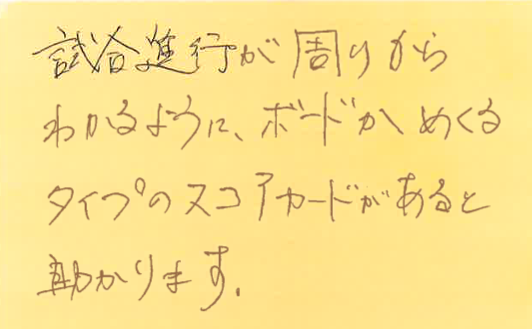 試合進行が周りから
わかるように、ボードか めくる
タイプのスコアカードがあると
助かります.